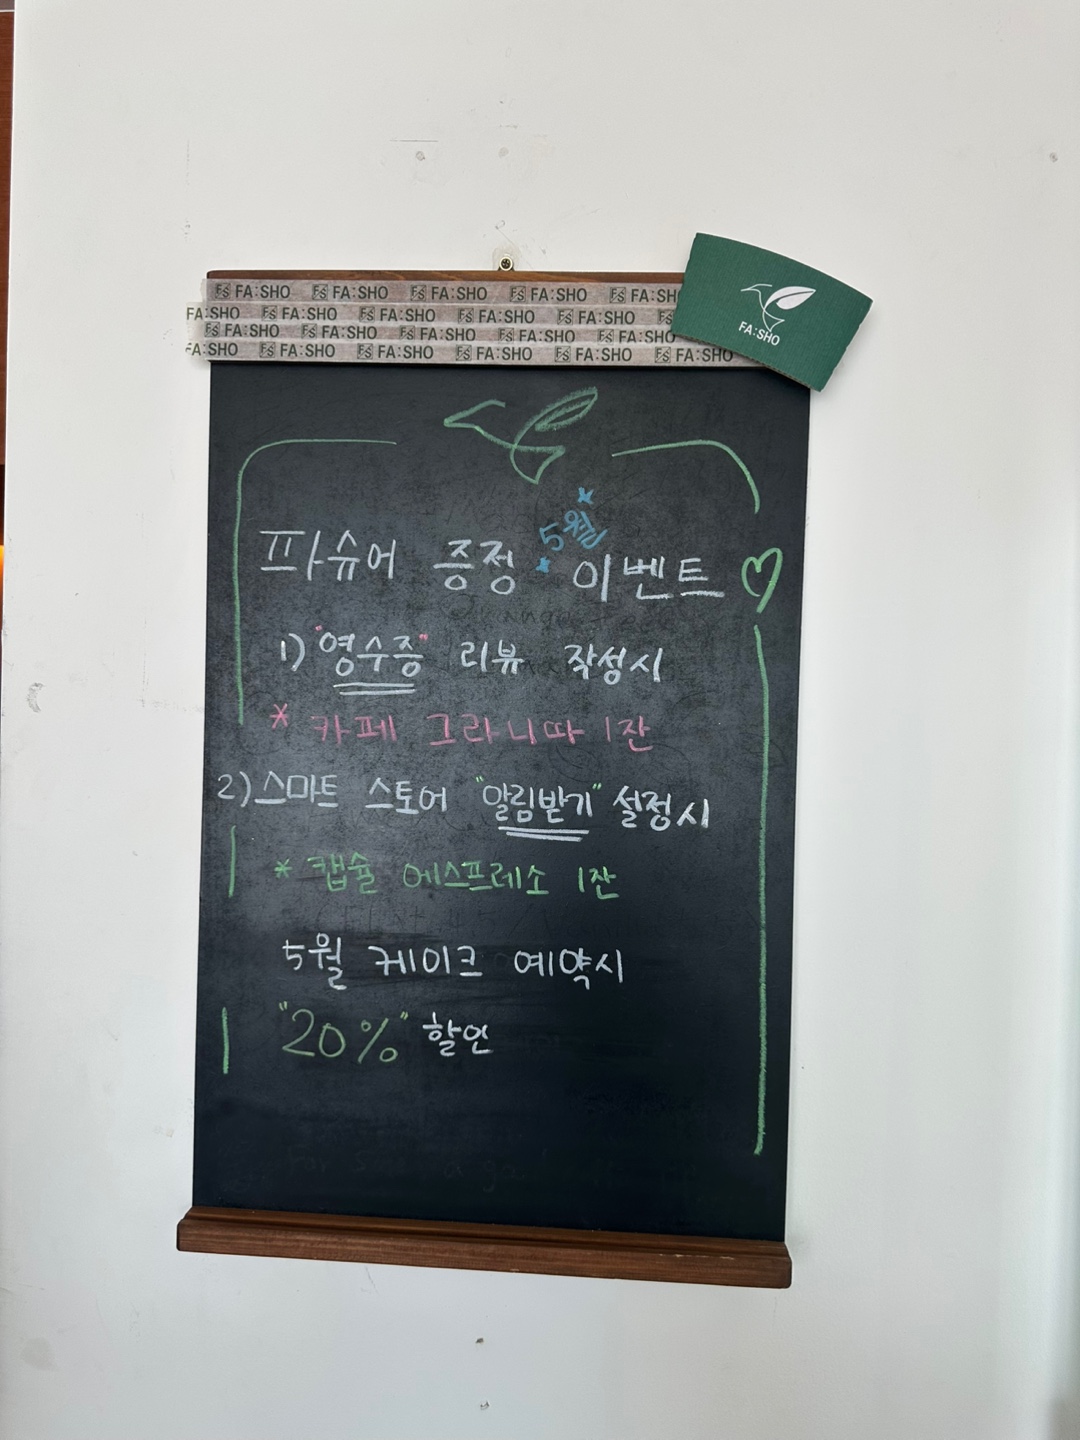 FS FA:SHO FS FA:SHO FS FA:SHO FS FA:SHO FS FA:SH
FA:SHO FS FA:SHO FS FA:SHO FS FA:SHO FS FA:SHO FS
FS FA:SHO FS FA:SHO FS FA:SHO FS FA:SHO FS FA:SHO
FA:SHO FS FA:SHO FS FA:SHO FS FA:SHO FS FA:SHO FS FA:SHO
FA:SHO
5월
파슈어 증정 이벤트
1) "영수증" 리뷰 작성시
* 카페 그라니따 1잔
2) 스마트 스토어 "알림받기" 설정시
* 캡슐 에스프레소 1잔
5월 케이크 예약시
"20%" 할인